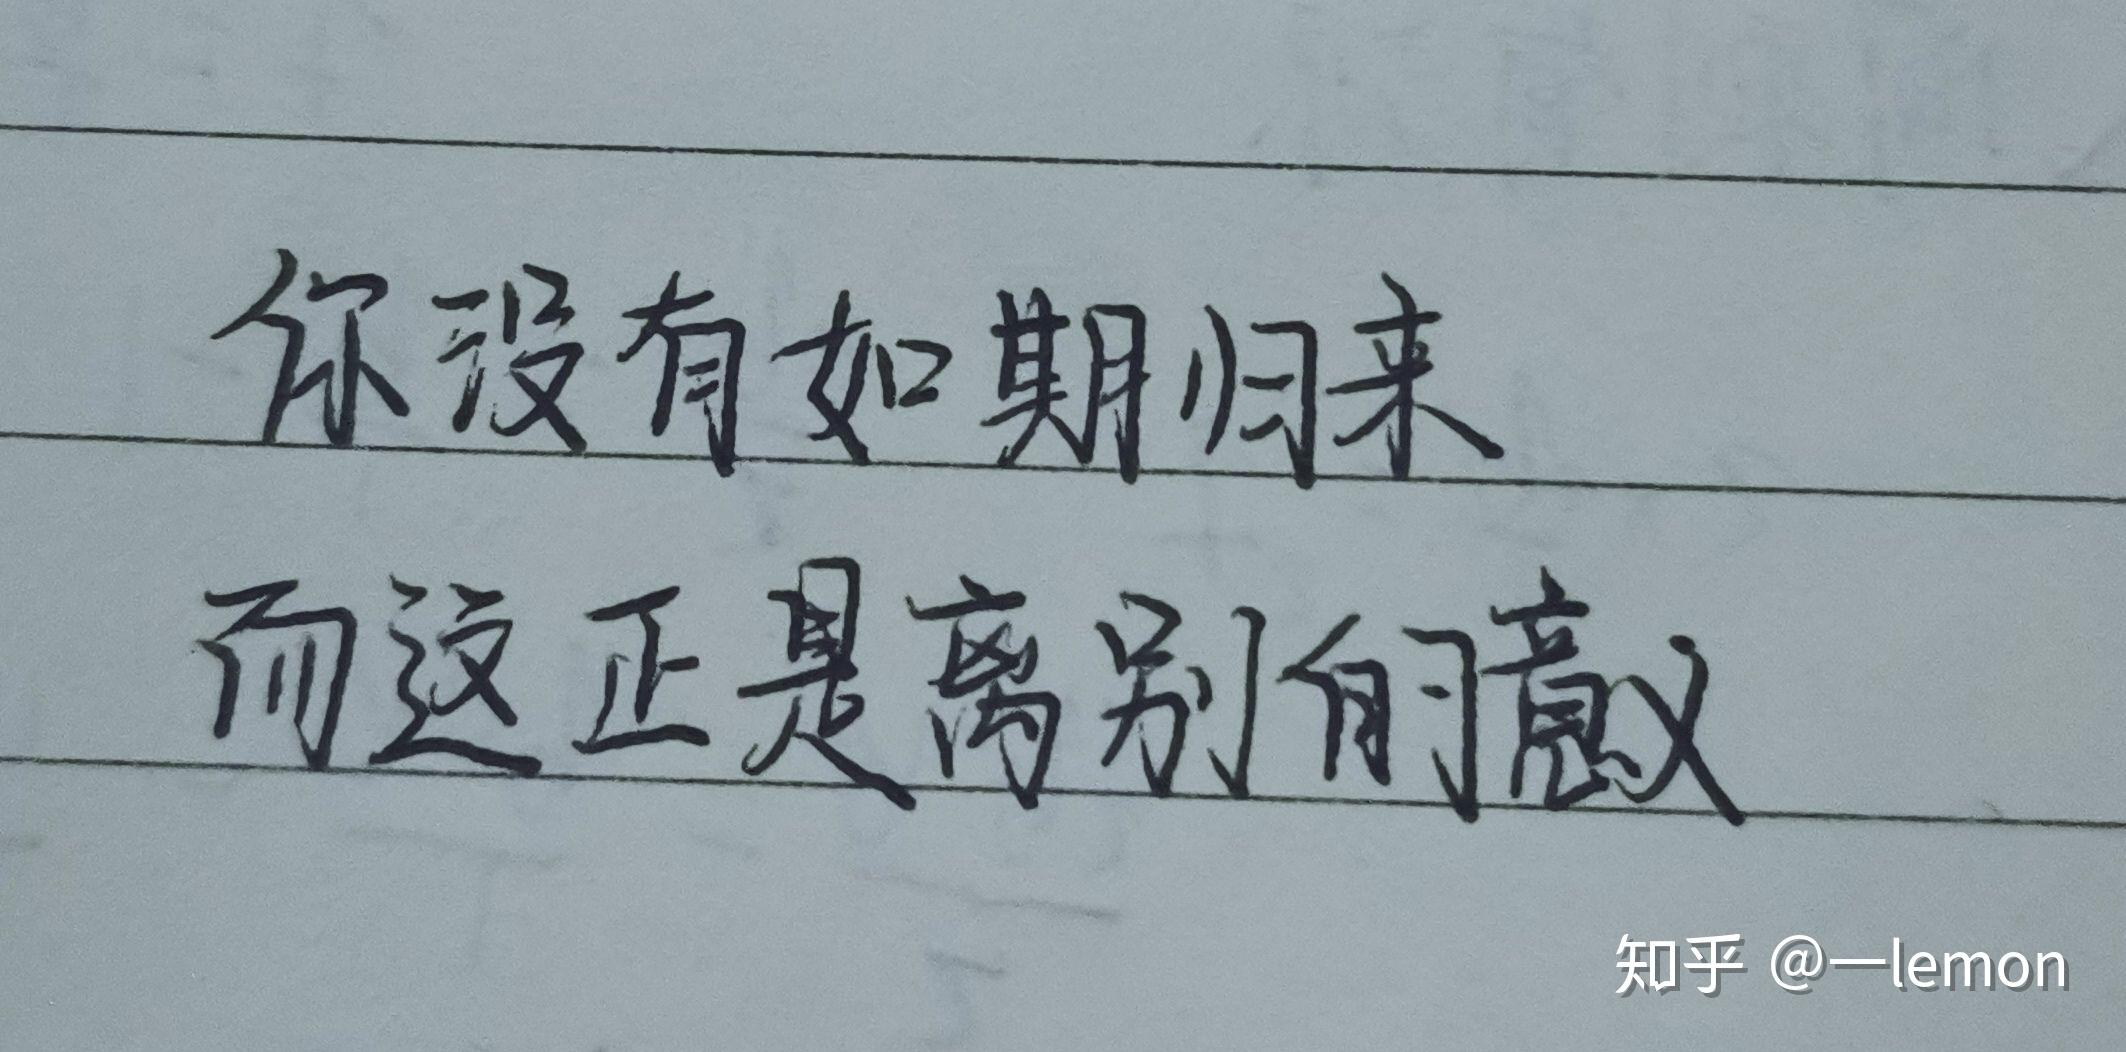 你没有如期归来
而这正是离别的意义
知乎 @一lemon